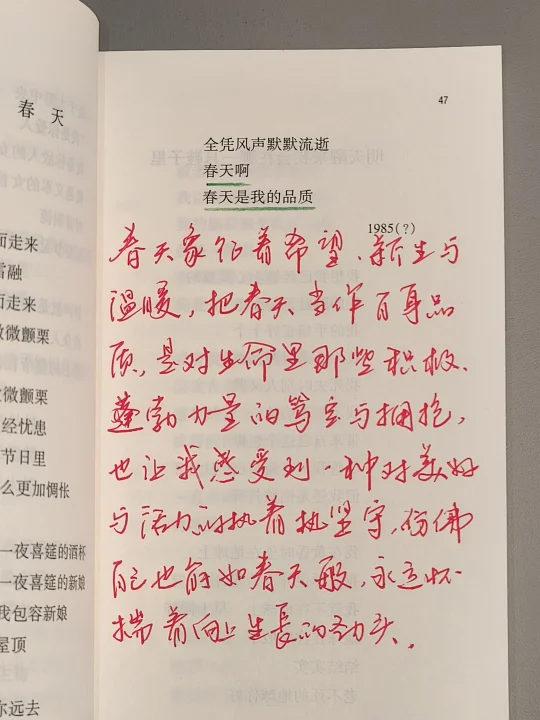 春天
而走来
雪融
而走来
微微颤栗
微微颤栗
经忧患
节日里
么更加惆怅
一夜喜筵的酒杯
一夜喜筵的新娘
我包容新娘
屋顶
你远去
47
全凭风声默默流逝
春天啊
春天是我的品质
1985(?)
春天象征着希望、新生与
温暖，把春天当作自身品
质，是对生命里那些积极、
蓬勃力量的笃定与拥抱，
也让我感受到一种对美好
与活力的执着执坚守，仿佛
自己也能如春天般，永远怀
揣着向上生長的劲头。